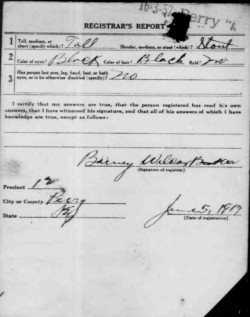 16-3-37 Perry "A
REGISTRAR'S REPORT
1 Tall, medium, or short (specify which)? Tall Slender, medium, or stout (which)? Stout
2 Color of eyes? Black Color of hair? Black Bald? No
3 Has person lost arm, leg, hand, foot, or both eyes, or is he otherwise disabled (specify)? no
I certify that my answers are true, that the person registered has read his own answers, that I have witnessed his signature, and that all of his answers of which I have knowledge are true, except as follows:
Barney
(Signature of registrar)
Precinct 12
City or County Perry
State Ky
June 5, 1917
(Date of registration)